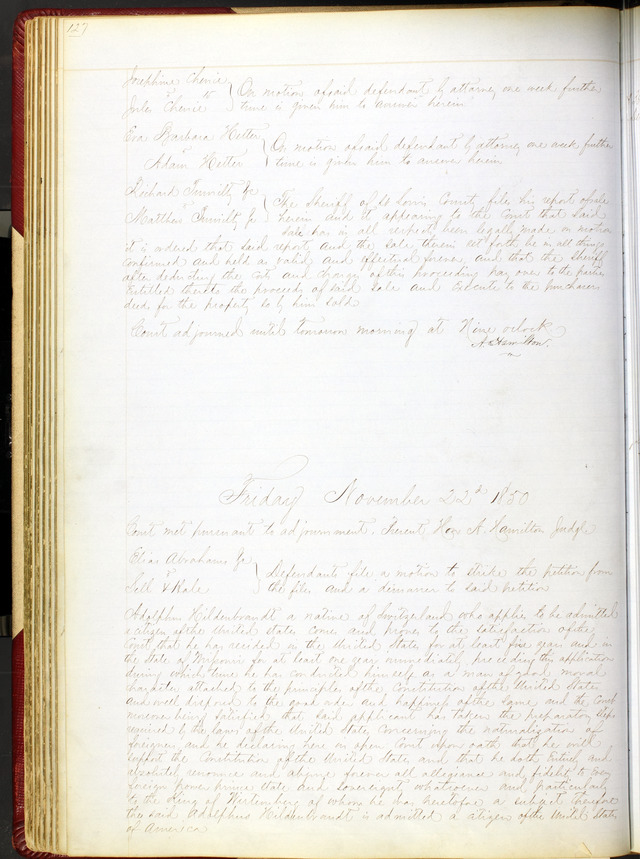 127
Josephine Chenie
vs
Jules Chenie } On motion of said defendant by attorney one week further
time is given him to answer herein
Eva Barbara Hetter
vs
Adam Hetter } On motion of said defendant by attorney one week further
time is given him to answer herein
Richard
Matthew } The Sheriff of St Louis County files his report of sale
herein and it appearing to the Court that said
sale has in all respects been legally made on motion
it is ordered that said report and the sale therein set forth be in all things
confirmed and held as valid and effectual forever, and that the Sheriff
after deducting the costs and charges of this proceeding pay over to the parties
Entitled thereto the proceeds of said sale and execute to the purchasers
deeds for the property so by him sold
Court adjourned until tomorrow morning at Nine oclock
A. Hamilton.
Friday November 22d 1850
Court met pursuant to adjournment. Present Hon A. Hamilton Judge
Elias Abrahams
vs
Sell & Kale } Defendants file a motion to strike the petition from
the files and a demurrer to said petition
Adolphus Hildenbrandt a native of Switzerland who applies to be admitted
a citizen of the United States comes and proves to the satisfaction of the
Court that he has resided in the United States for at least five years and in
the State of Missouri for at least one year immediately preceding this application
during which time he has conducted himself as a man of good moral
character attached to the principles of the Constitution of the United States
and well disposed to the good order and happiness of the same and the Court
moreover being satisfied that said applicant has taken the preparatory steps
required by the laws of the United States concerning the naturalization of
foreigners and he declaring here in open Court upon oath that he will
support the Constitution of the United States and that he doth entirely and
absolutely renounce and abjure forever all allegiance and fidelity to every
foreign power prince state and sovereignty whatsoever and particularly
to the King of Wertemberg of whom he was heretofore a subject Therefore
the said Adolphus Hildenbrandt is admitted a citizen of the United States
of America